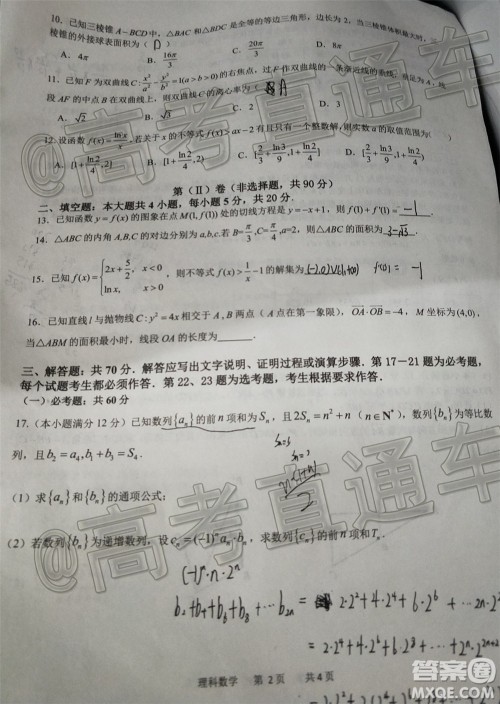 10. 已知三棱锥A-BCD中，△ABC和△BDC是全等的等边三角形，边长为2，当三棱锥体积最大时，三
棱锥的外接球表面积为（ D ）
A. 5π B. 16π/3 C. 20π/3
11. 已知F为双曲线C: x²/a² - y²/b² =1(a>b>0)的右焦点，过F作双曲线的一条渐近线的垂线，垂足为A，
段AF的中点B在双曲线上，则双曲线C的离心率为（ A
A. √2 B. √3
12. 设函数f(x)=lnx/x，若关于x的不等式f(x)>ax-2有且只有一个整数解，则实数a的取值范围为
A. [1+ln2/4, 2) B. [1+ln2/4, C. [2/3+ln3/9, 1+ln2/4) D. [2/3+ln3/9, 1+ln2/4]
第（Ⅱ）卷（非选择题，共90分）
二、填空题：本大题共4小题，每小题5分，共20分．
13. 已知函数y=f(x)的图象在点M(1,f(1))处的切线方程是y=-x+1，则f(1)+f'(1)= -1
14. △ABC的内角A,B,C的对边分别为a,b,c.若B=π/3,C=π/4,a=2，则△ABC的面积为 3-√3 ．
15. 已知f(x)={2x+5/2, x<0 lnx, x>0，则不等式f(x)>1/x-1的解集为 (-2,0)∪(1,+∞) f(0)= -1
16. 已知直线l与抛物线C: y²=4x相交于A,B两点（A在第一象限），OA·OB=-4，M坐标为(4,0)，
当△ABM的面积最小时，线段OA的长度为
三、解答题：共70分．解答应写出文字说明、证明过程或演算步骤．第17-21题为必考题，
每个试题考生都必须作答．第22、23题为选考题，考生根据要求作答．
（一）必考题：共60分
17.（本小题满分12分）已知数列{aₙ}的前n项和为Sₙ，且2Sₙ=n²+n（n∈N*），数列{bₙ}为等比数
列，且b₂=a₄,b₁+b₃=S₄．
n(1+n)/2
（1）求{aₙ}和{bₙ}的通项公式；
（2）若数列{bₙ}为递增数列，设cₙ=(-1)ⁿaₙ·bₙ，求数列{cₙ}的前n项和Tₙ．
(-1)ⁿ·n·2ⁿ
b₂+b₄+b₆+b₈+···b₂ₙ = 2·2²+4·2⁴+6·2⁶+···2n·2
= 2·2⁴+4·2⁶+6·2⁸+···+2n·2²ⁿ⁺²
理科数学 第2页 共4页
@高考直通车
@高考直通车
@高考直通车
答案圈
MXQE.COM